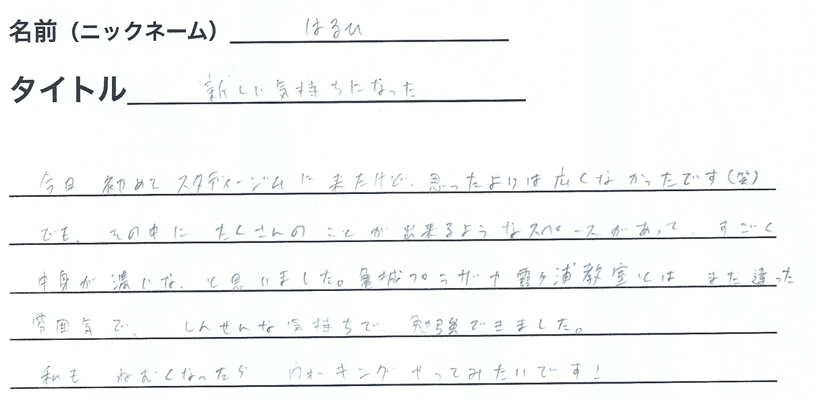 名前（ニックネーム） はるひ
タイトル 新しい気持ちになった
今日 初めて スタディージムに 来たけど、思ったよりは 広くなかったです（笑）
でも、その中に たくさんの ことが 出来るような スペースがあって、すごく
中身が 濃いな、と思いました。亀城プラザや 霞ヶ浦教室とは また違った
雰囲気で、 しんせんな 気持ちで 勉強できました。
私も ねむくなったら ウォーキング やってみたいです！